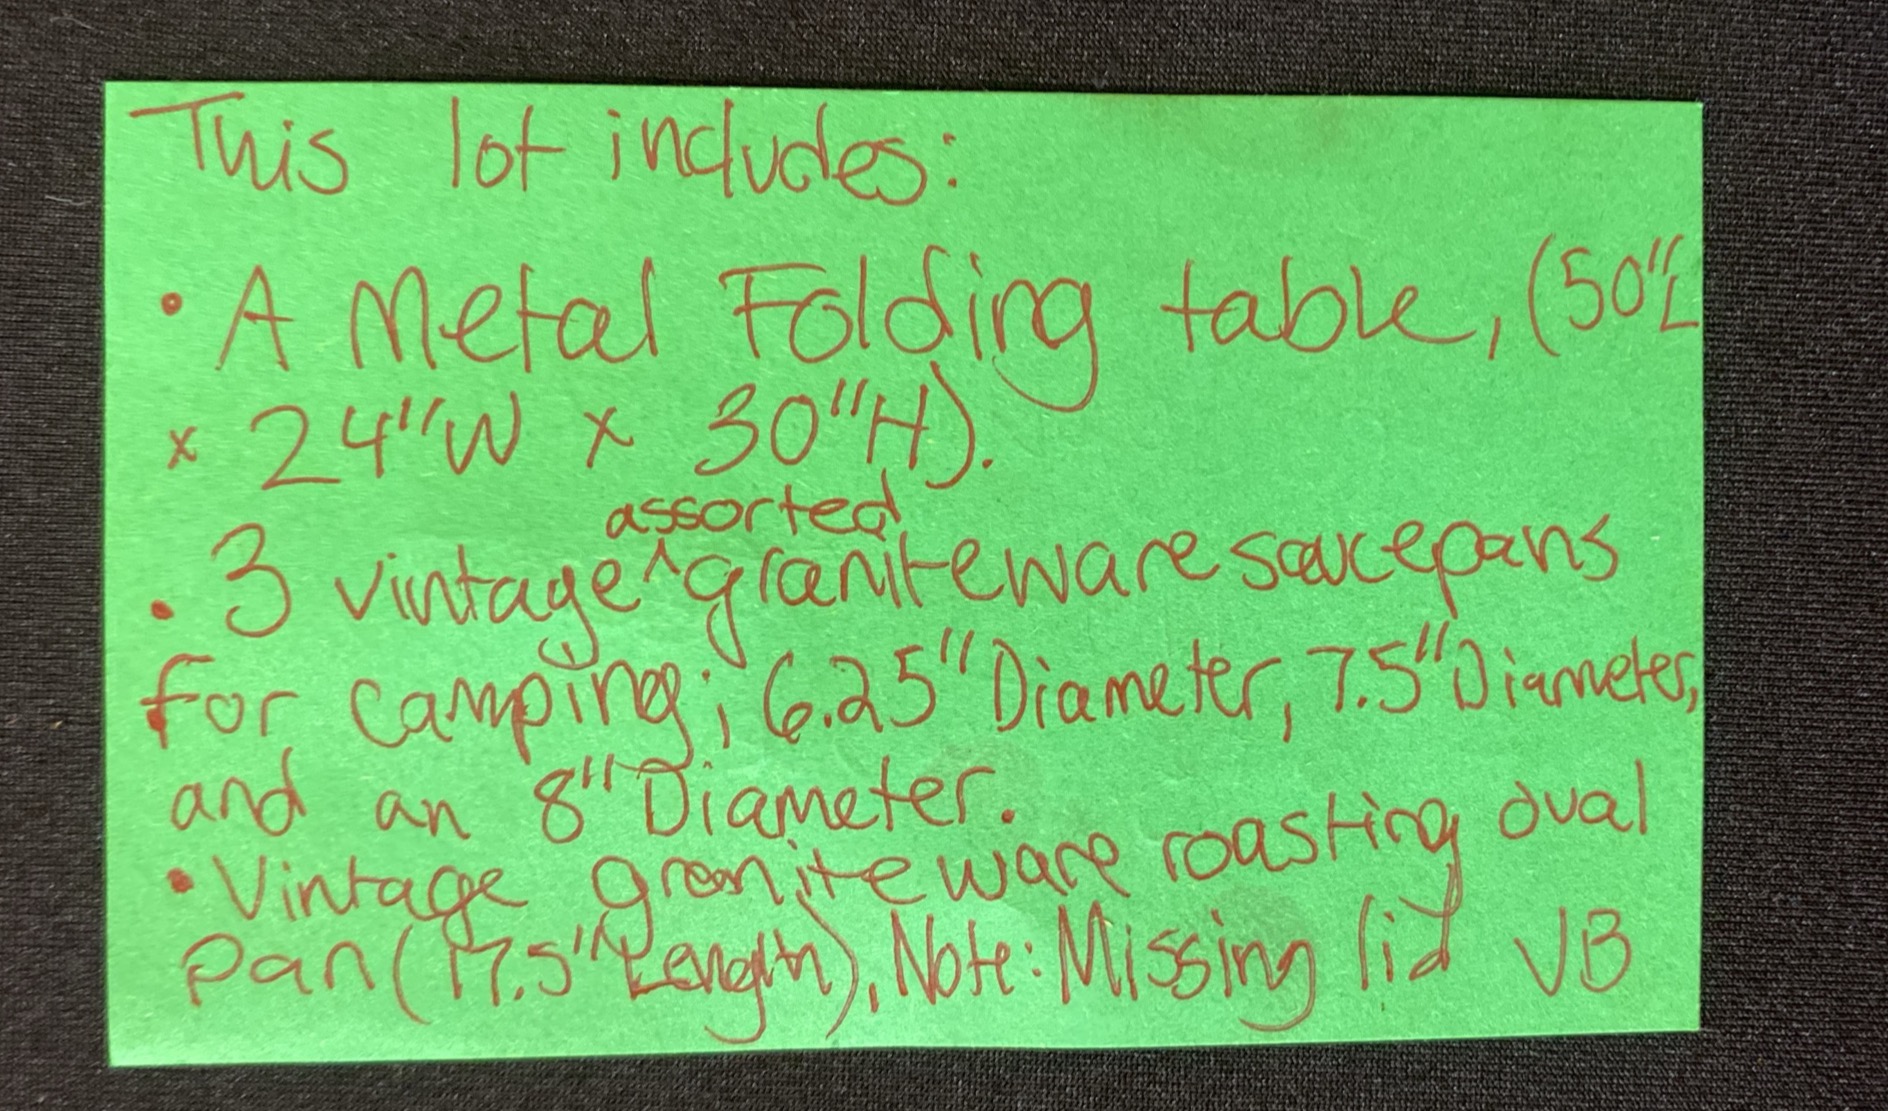 This lot includes:
• A Metal Folding table, (50"L
x 24"W x 30"H).
assorted
• 3 vintage ^ graniteware saucepans
for camping; 6.25" Diameter, 7.5" Diameter,
and an 8" Diameter.
• Vintage graniteware roasting oval
Pan (17.5" Length), Note: Missing lid VB